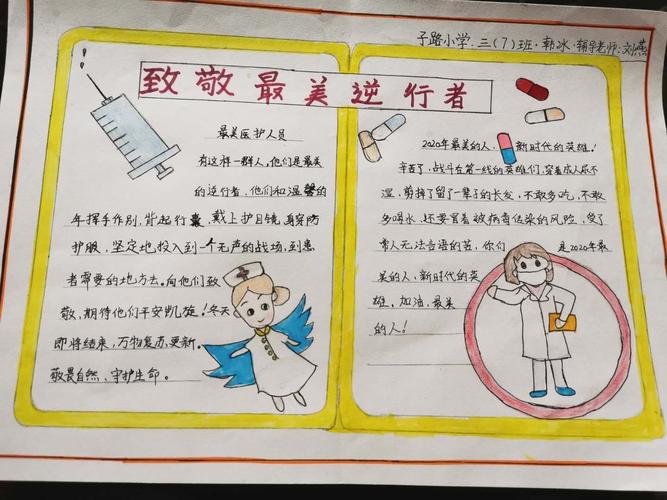 子路小学·三(7)班·韩冰·辅导老师:刘燕
致敬最美逆行者
最美医护人员
有这样一群人。他们是最美
的逆行者，他们和温馨的
年挥手作别，背起行囊，戴上护目镜，身穿防
护服，坚定地投入到一个无声的战场，到患
者需要的地方去。向他们致
敬，期待他们平安凯旋！冬天
即将结束，万物复苏，更新。
敬畏自然、守护生命。
2020年最美的人，新时代的英雄！
辛苦了，战斗在第一线的英雄们，穿着成人尿不
湿，剪掉了留了一辈子的长发，不敢多吃，不敢
多喝水，还要冒着被病毒传染的风险，受了
常人无法言语的苦，你们是2020年最
美的人，新时代的英
雄，加油，最美
的人！